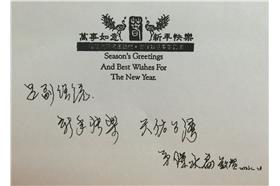 萬事如意 新年快樂
Season's Greetings
And Best Wishes For
The New Year.
呂副總統
新年快樂 天佑台灣
敬賀